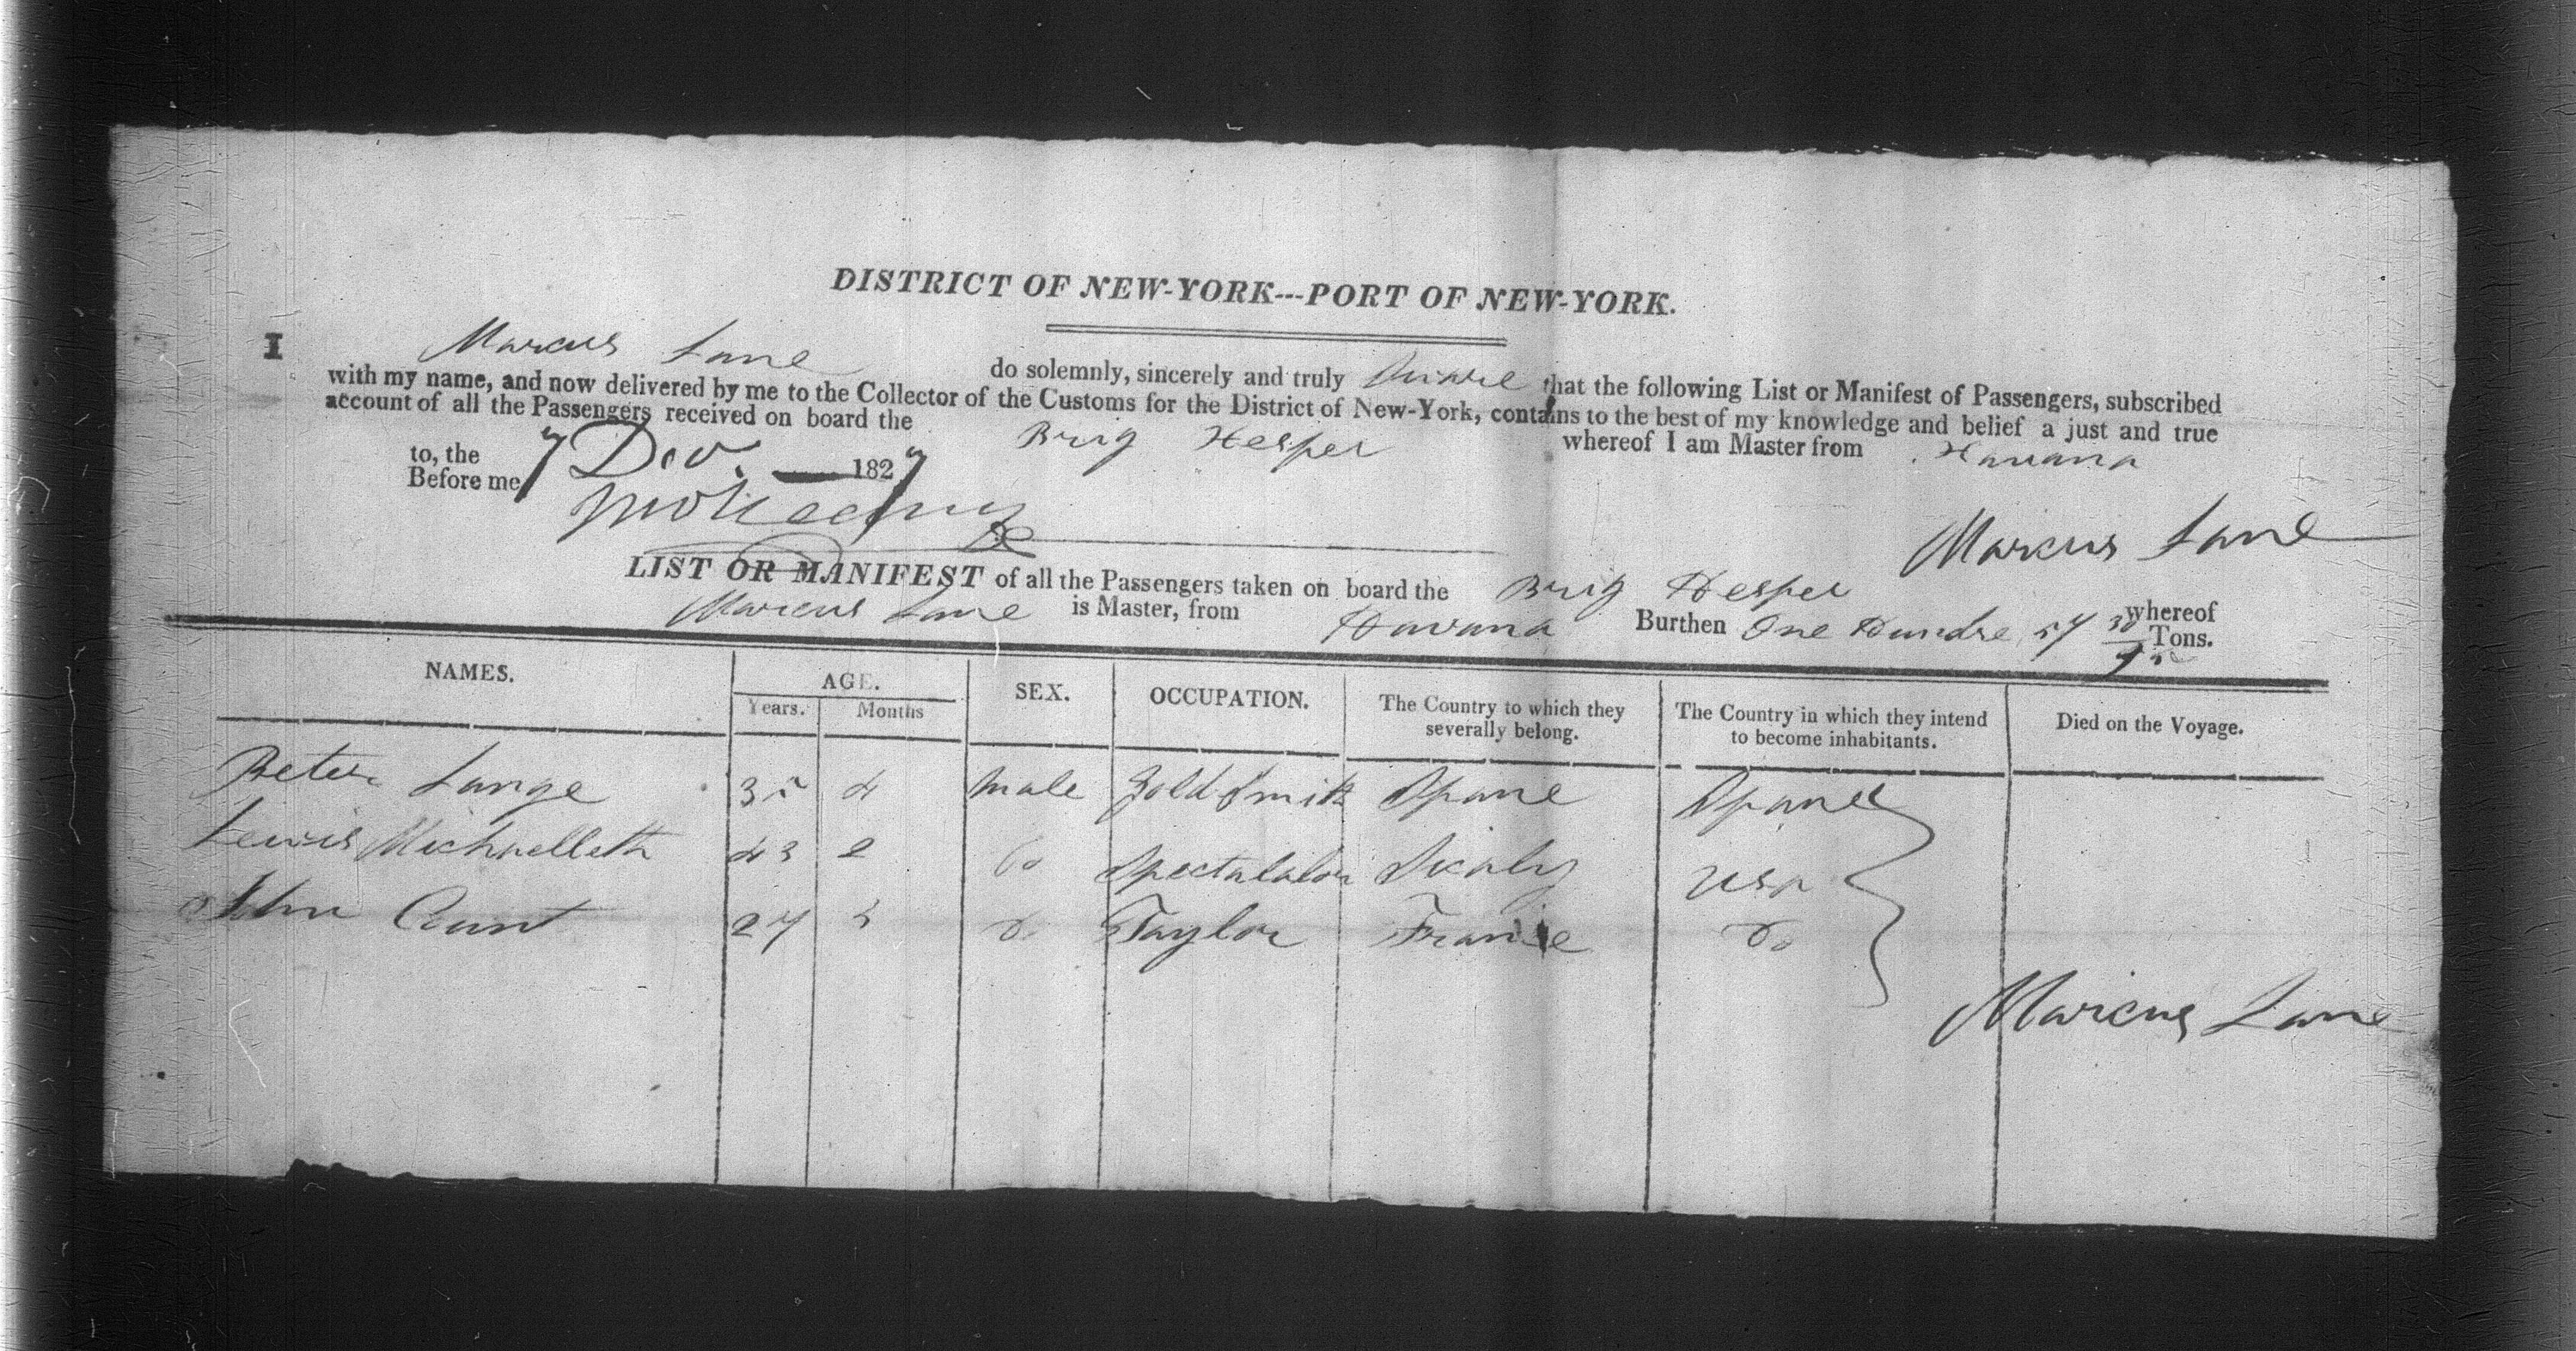 DISTRICT OF NEW-YORK---PORT OF NEW-YORK.
I Marcus Lane do solemnly, sincerely and truly that the following List or Manifest of Passengers, subscribed
with my name, and now delivered by me to the Collector of the Customs for the District of New-York, contains to the best of my knowledge and belief a just and true
account of all the Passengers received on board the Brig Hesper whereof I am Master from Havana
to, the 7 Dec. 1827
Before me
Marcus Lane
LIST OR MANIFEST of all the Passengers taken on board the Brig Hesper whereof
Marcus Lane is Master, from Havana Burthen One Hundre 57 Tons.
NAMES. AGE. SEX. OCCUPATION. The Country to which they severally belong. The Country in which they intend to become inhabitants. Died on the Voyage.
Years. Months
Peter Lange 35 4 male Gold Smith Spane Spane
Lewis 43 2 Do Sicaly USA
John 27 Do Taylor France Do
Marcus Lane